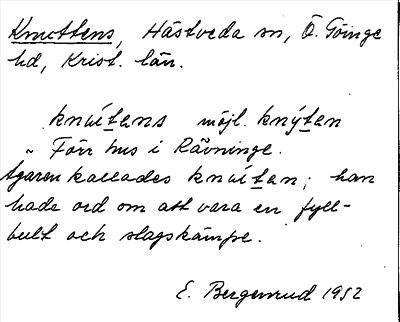 Knuttens, Hästveda sn, Ö. Göinge
hd, Krist. län.
knuítens möjl. knýten
" Förr hus i Rävninge.
Ägaren kallades knuíten; han
hade ord om att vara en fyll-
bult och slagskämpe.
E. Bergenrud 1952